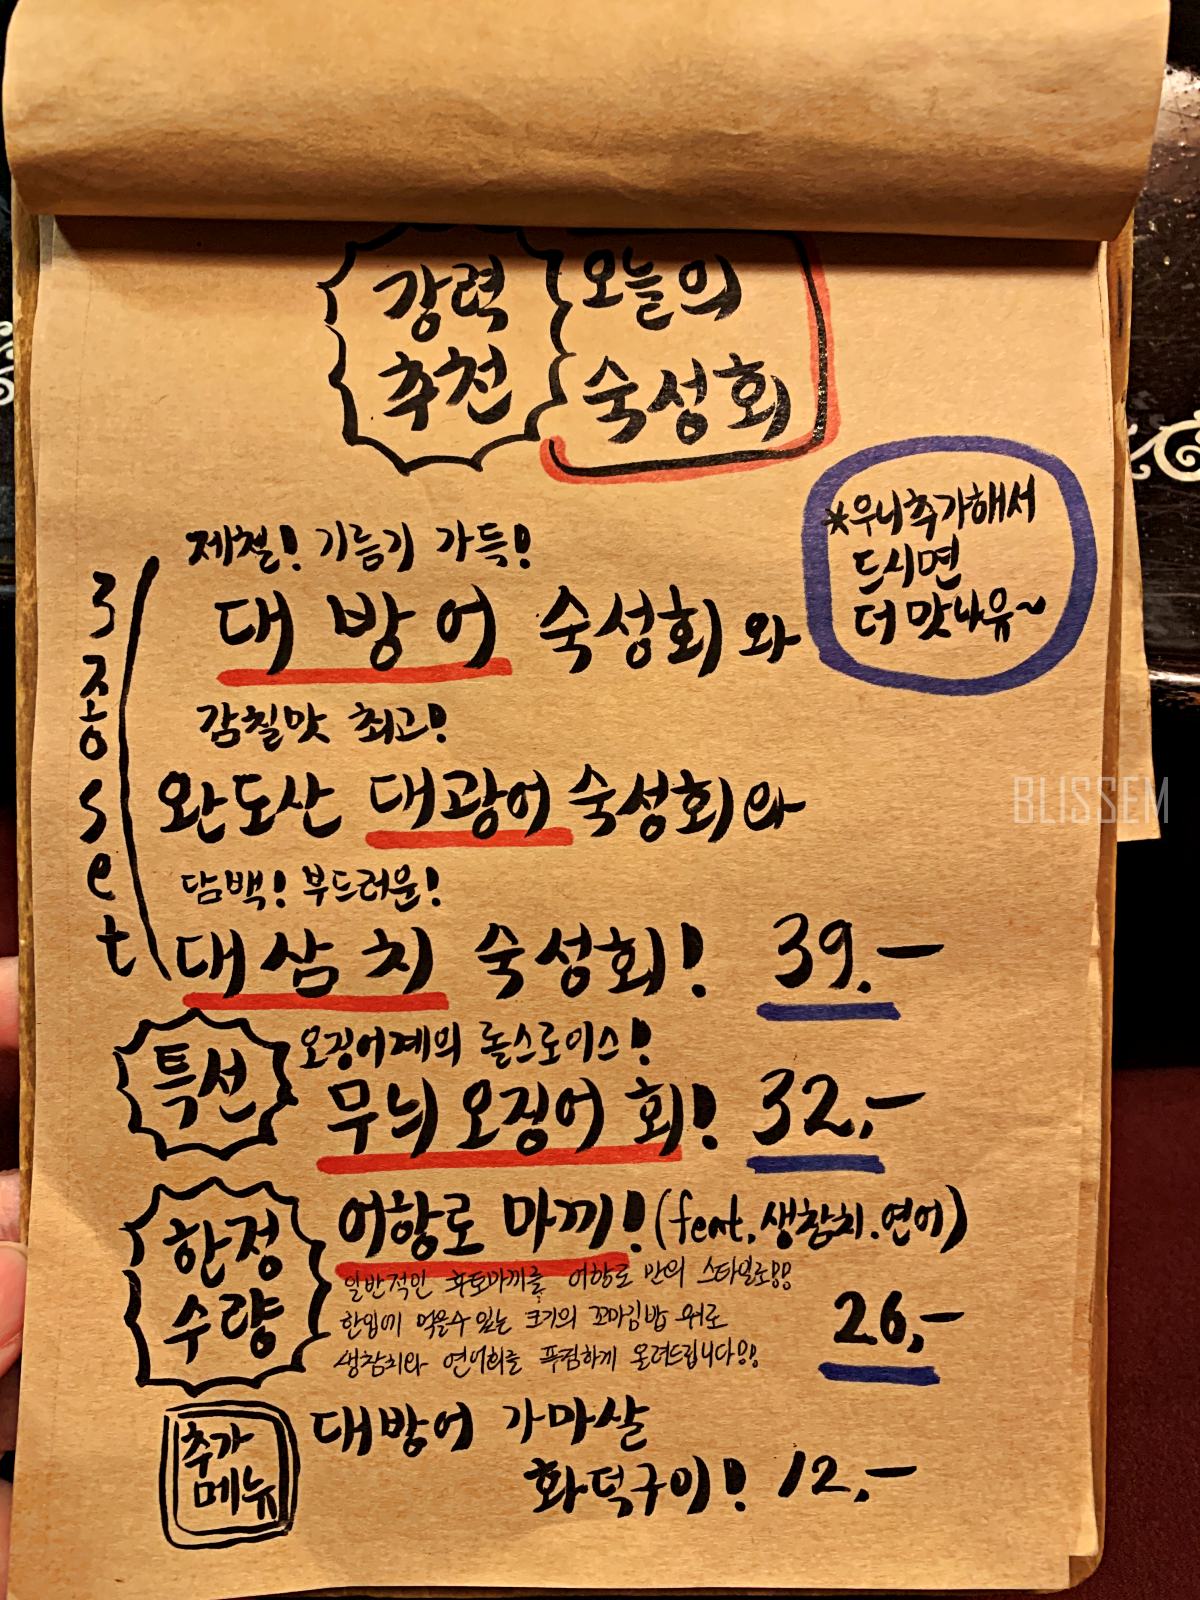 강력
추천
오늘의
숙성회
*우니추가해서
드시면
더 맛나유~
3종 set
제철! 기름기 가득!
대방어 숙성회와
감칠맛 최고!
완도산 대광어 숙성회와
담백! 부드러운!
대삼치 숙성회! 39.-
특선
오징어계의 롤스로이스!
무늬 오징어 회! 32.-
한정
수량
어항로 마끼! (feat. 생참치.연어)
일반적인 후토마끼를 어항로 만의 스타일로!!
한입에 먹을수 있는 크기의 꼬마김밥 위로
생참치와 연어회를 푸짐하게 올려드립니다!!
26.-
추가
메뉴
대방어 가마살
화덕구이! 12.-
BLISSEM